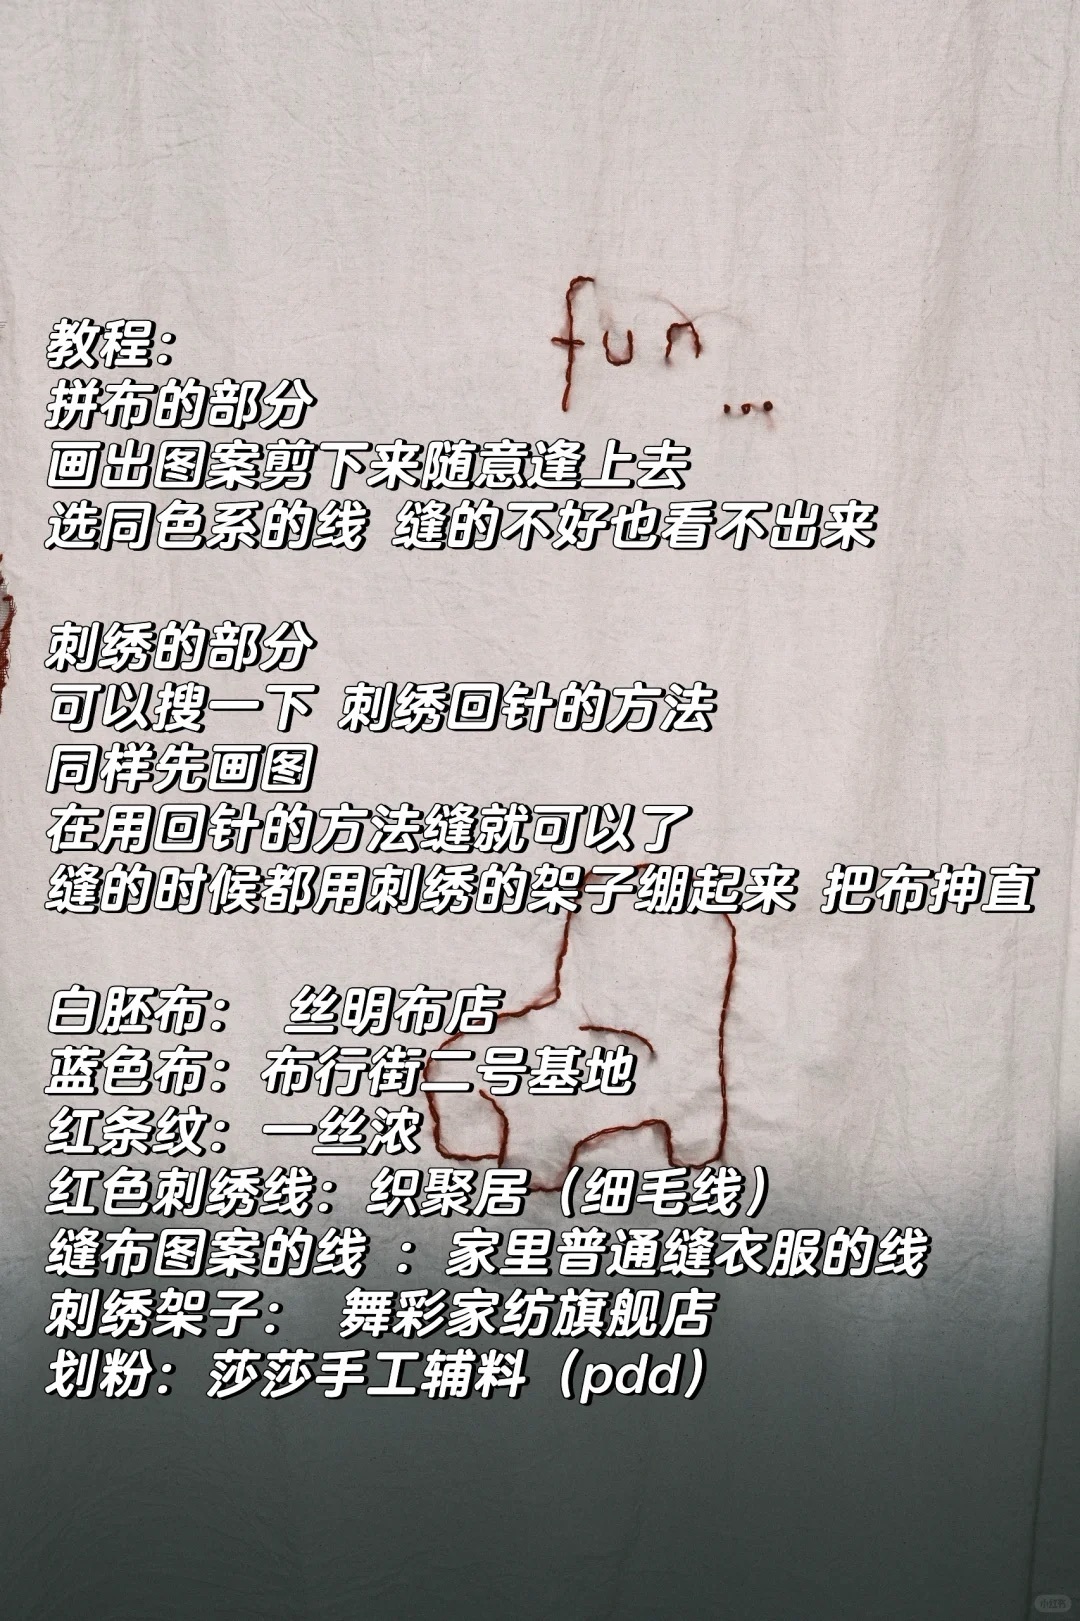 fun
...
教程：
拼布的部分
画出图案剪下来随意逢上去
选同色系的线 缝的不好也看不出来
刺绣的部分
可以搜一下 刺绣回针的方法
同样先画图
在用回针的方法缝就可以了
缝的时候都用刺绣的架子绷起来 把布抻直
白胚布： 丝明布店
蓝色布：布行街二号基地
红条纹：一丝浓
红色刺绣线：织聚居（细毛线）
缝布图案的线 ：家里普通缝衣服的线
刺绣架子： 舞彩家纺旗舰店
划粉：莎莎手工辅料（pdd）
小红书